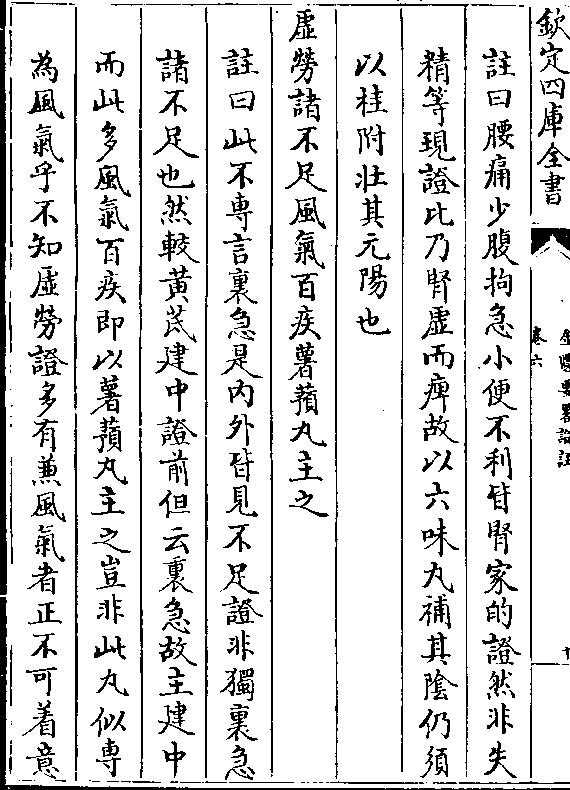 欽定四庫全書
金匱要畧論註
卷六
註曰腰痛少腹拘急小便不利皆腎家的證然非失
精等現證比乃腎虛而痺故以六味丸補其陰仍須
以桂附壯其元陽也
虛勞諸不足風氣百疾薯蕷丸主之
註曰此不專言裏急是内外皆見不足證非獨裏急
諸不足也然較黃芪建中證前但云裏急故主建中
而此多風氣百疾即以薯蕷丸主之豈非此丸似専
為風氣乎不知虛勞證多有兼風氣者正不可着意